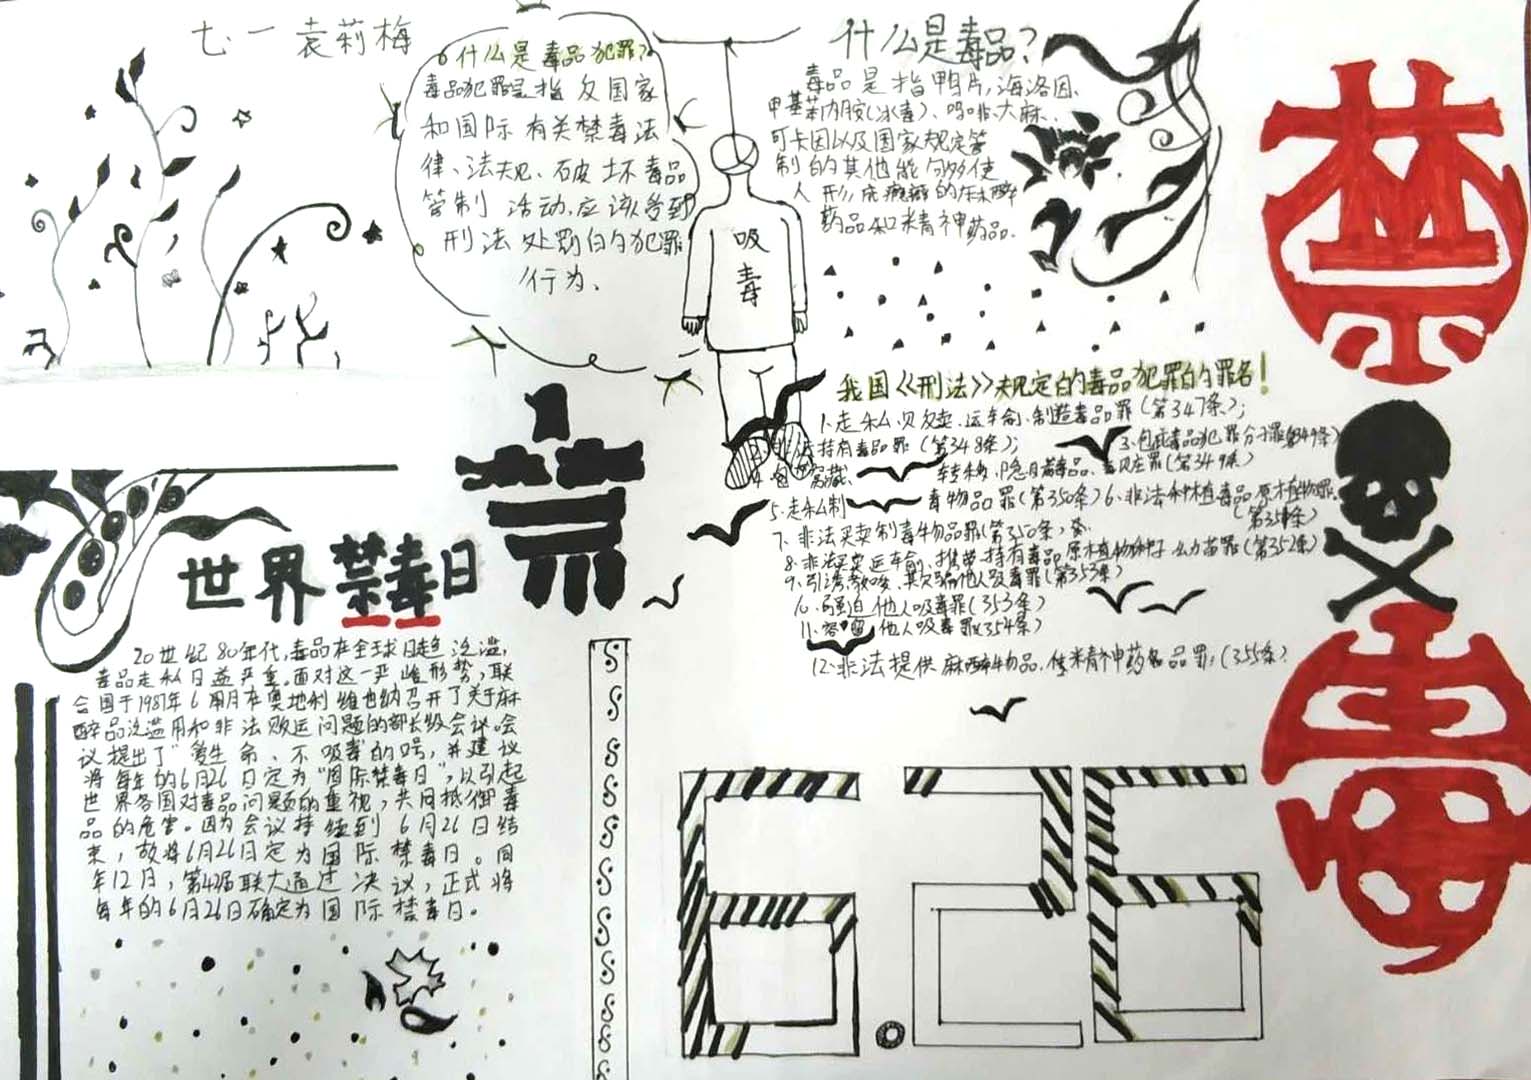 七一 袁莉梅
什么是毒品犯罪?
毒品犯罪是指反国家
和国际有关禁毒法
律、法规、破坏毒品
管制活动,应该给到
刑法处罚的犯罪
行为、
吸
毒
什么是毒品?
毒品是指鸭片,海洛因、
甲基苯丙胺(冰毒)、吗啡、大麻、
可卡因以及国家规定管
制的其他能够使
人形成瘾癖的麻醉
药品和精神药品.
禁
毒
我国《刑法》规定的毒品犯罪的罪名!
1.走私.贩卖.运输.制造毒品罪(第347条);
持有毒品罪(第348条);
3.包庇毒品犯罪分子罪(第349条)
4.包 窝藏、 转移、隐月 毒品、毒贝庄罪(第349条
5.走私制 毒物品罪(第350条)6.非法种植毒品原木植物罪.
(第351条)
7、非法买卖制毒物品罪(第350条)
8.非法买卖运输、携带持有毒品原木植物种子 幼苗罪(第352条)
9、引诱教唆、欺骗他人吸毒罪(第353条)
10.强迫他人吸毒罪(353条)
11、容留他人吸毒罪(354条)
12.非法提供麻醉物品.
(355条)
世界禁毒日
20世纪80年代,毒品在全球日趋泛滥,
毒品走私日益严重。面对这一严峻形势,联
合国于1987年6月在奥地利维也纳召开了关于麻
醉品泛滥用和非法贩运问题的部长级会议。会
议提出了“爱生命、不吸毒”的口号,并建议
将每年的6月26日定为“国际禁毒日”,以引起
世界各国对毒品问题的重视,共同抵御毒
品的危害。因为会议持续到6月26日结
束,故将6月26日定为国际禁毒日。同
年12月,第42届联大通过决议,正式将
每年的6月26日确定为国际禁毒日。
6.26